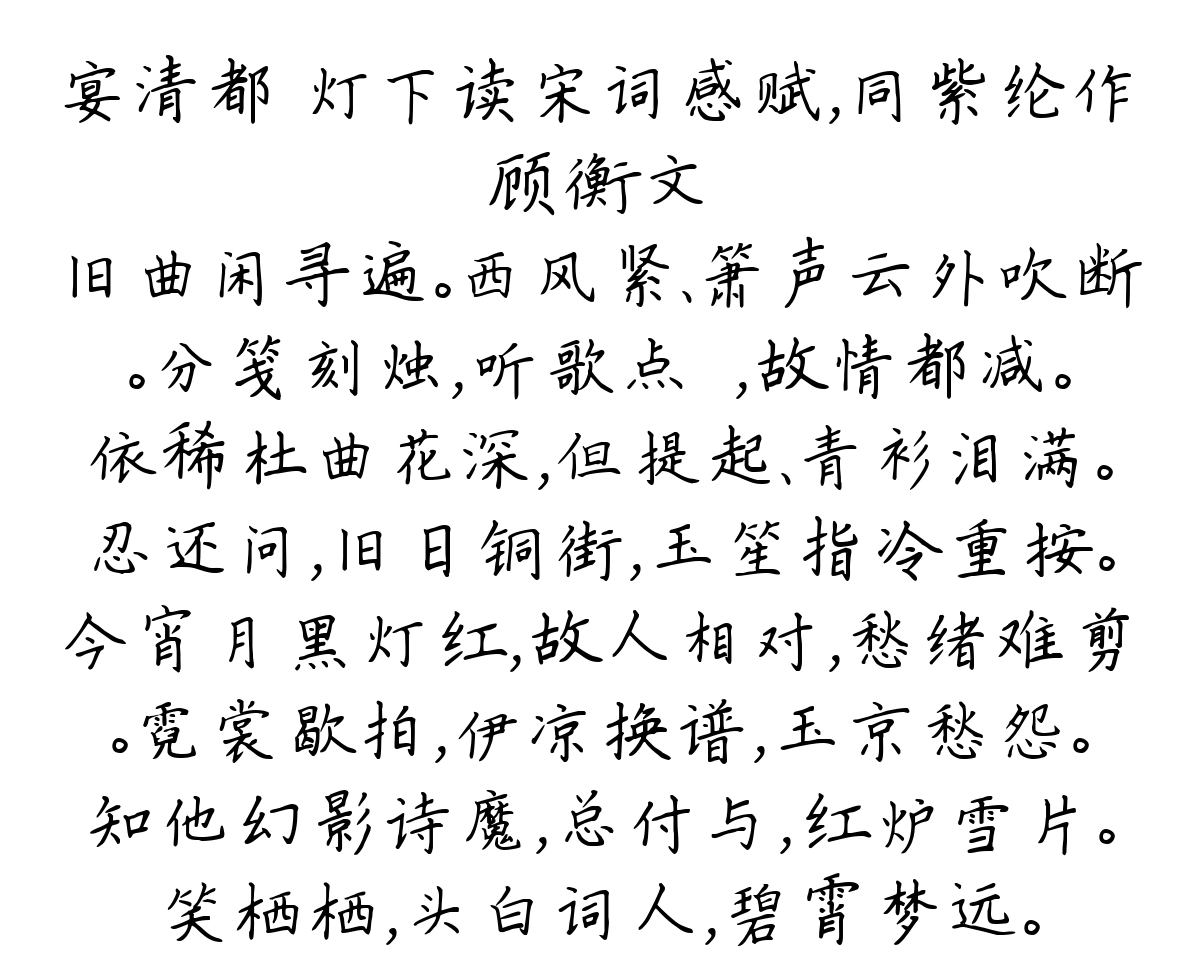 宴清都 灯下读宋词感赋,同紫纶作
顾衡文
旧曲闲寻遍。西风紧、箫声云外吹断
。分笺刻烛,听歌点 ,故情都减。
依稀杜曲花深,但提起、青衫泪满。
忍还问,旧日铜街,玉笙指冷重按。
今宵月黑灯红,故人相对,愁绪难剪
。霓裳歇拍,伊凉换谱,玉京愁怨。
知他幻影诗魔,总付与,红炉雪片。
笑栖栖,头白词人,碧霄梦远。